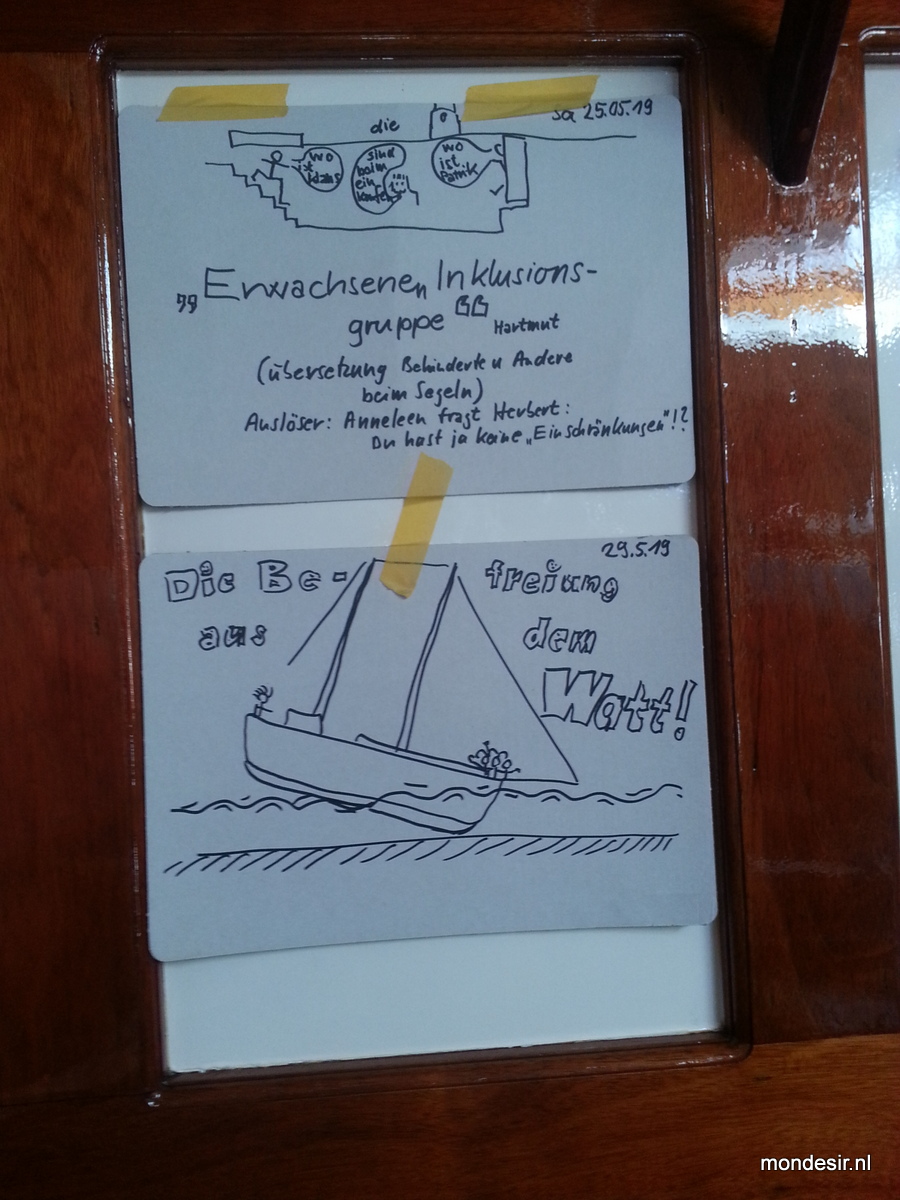 Sa 25.05.19
die
wo
ist
Klaus
sind
beim
ein
kaufen
wo
ist
Patrik
„Erwachsenen Inklusions-
gruppe“ Hartmut
(übersetzung Behinderte u Andere
beim Segeln)
Auslöser: Anneleen fragt Herbert:
Du hast ja keine „Einschränkungen“!?
29.5.19
Die Be- freiung
aus dem
Watt!
mondesir.nl